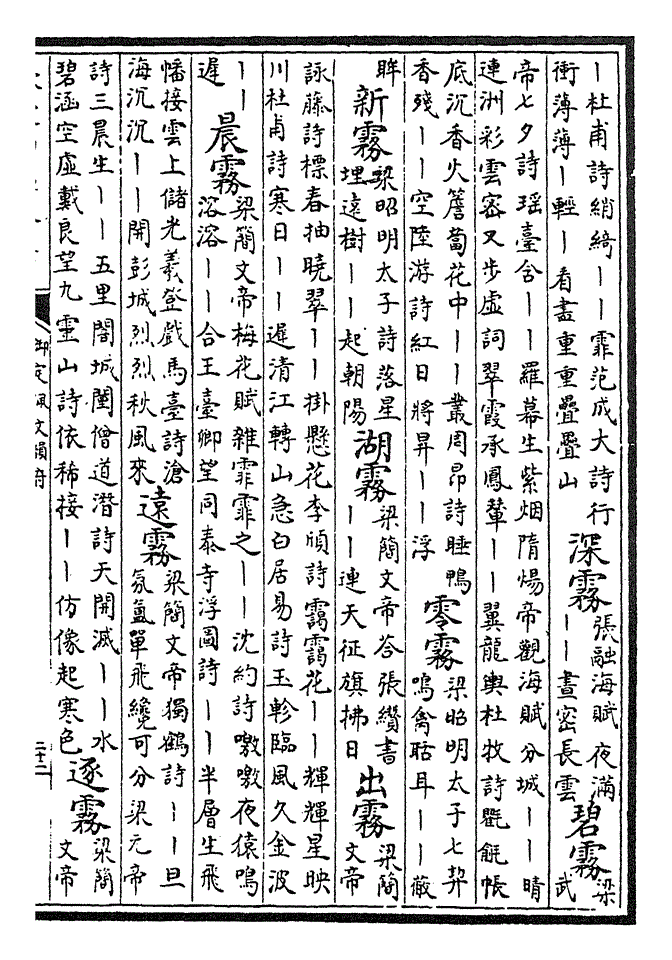 ーー杜甫詩綃綺ーー霏范成大詩行
衝薄薄ー輕ー看盡重重疊疊山
深霧
張融海賦夜滿
ーー晝密長雲
碧霧
梁
武
帝七夕詩瑶臺含ーー羅幕生紫烟隋煬帝觀海賦分城ーー晴
連洲彩雲密又步虛詞翠霞承鳳輦ーー翼龍輿杜牧詩氍毹帳
底沉香火簷蔔花中ーー叢周昂詩睡鴨
香殘ーー空陸游詩紅日將昇ーー浮
零霧
梁昭明太子七契
鳴禽聒耳ーー蔽
眸
新霧
梁昭明太子詩落星
埋遠樹ーー起朝陽
湖霧
梁簡文帝荅張纘書
ーー連天征旗拂日
出霧
梁簡
文帝
詠藤詩標春抽曉翠ーー掛懸花李頎詩靄靄花ーー輝輝星映
川杜甫詩寒日ーー遲清江轉山急白居易詩玉軫臨風久金波
ーー
遲
晨霧
梁簡文帝梅花賦雜霏霏之ーー沈約詩噭噭夜猿鳴
溶溶ーー合王臺卿望同泰寺浮圖詩ーー半層生飛
幡接雲上儲光羲登戲馬臺詩滄
海沉沉ーー開彭城烈烈秋風來
遠霧
梁簡文帝獨鶴詩ーー旦
氛氳單飛纔可分梁元帝
詩三晨生ーー五里闇城闉僧道潛詩天開滅ーー水
碧涵空虛戴良望九靈山詩依稀接ーー仿像起寒色
逐霧
梁簡
文帝
御定佩文韻府
二十二